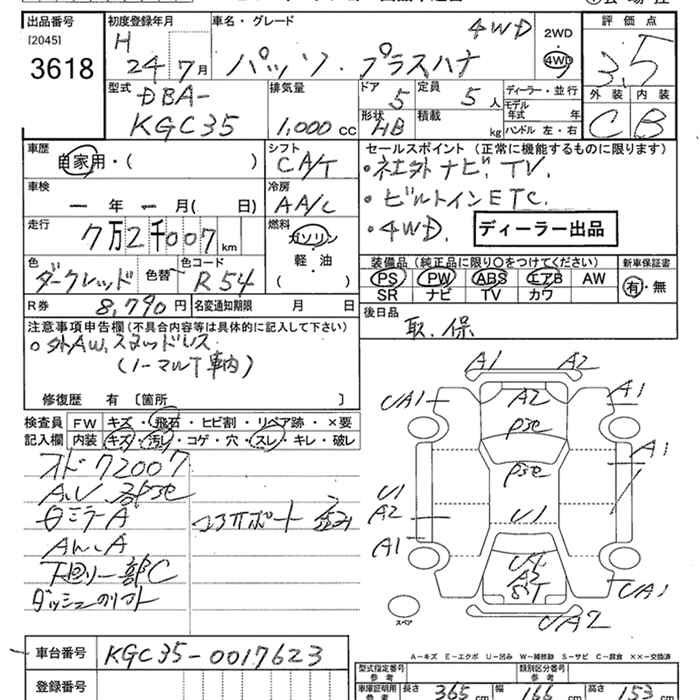 出品番号
[2045]
3618
初度登録年月
H
24年7月
車名・グレード
4WD
パッソ・プラスハナ
2WD
・
4WD
評価点
3.5
外装 内装
C B
型式
DBA-
KGC35
排気量
1,000 cc
ドア
5
定員
5 人
形状
HB
積載
kg
ディーラー・並行
モデル
年式 年
ハンドル 左・右
車歴
自家用・( )
シフト
CA/T
車検
ー年ー月( 日)
冷房
AA/C
走行
7万2千007 km
燃料
ガソリン
・
軽・油
( )
色
ダークレッド
色替
色コード
R54
R券 8,790 円
名変通知期限 月 日
セールスポイント (正常に機能するものに限ります)
・社外ナビ、TV.
・ビルトインETC.
・4WD.
ディーラー出品
装備品 (純正品に限り○をつけてください)
PS PW ABS エアB AW
SR ナビ TV カワ
新車保証書
有・無
後日品
取.保
注意事項申告欄(不具合内容等は具体的に記入して下さい)
○外AW、スタッドレス
(ノーマルT車内)
修復歴 有 〔箇所 〕
検査員
記入欄
FW キズ・飛石・ヒビ割・リペア跡・×要
内装 キズ・汚レ・コゲ・穴・スレ・キレ・破レ
オド72007
下回り一部C
A1 A2
UA1 A2 A1
A1
U1
A2 U1
A1
A2
UA1
UA2
スペア
A-キズ E-エクボ U-凹み W-補修跡 S-サビ C-腐食 ××-交換済
車台番号 KGC35-0017623
登録番号
型式指定番号
参考
類別区分番号
参考
車庫証明用
参考
長さ 365 cm 幅 166 cm 高さ 153 cm